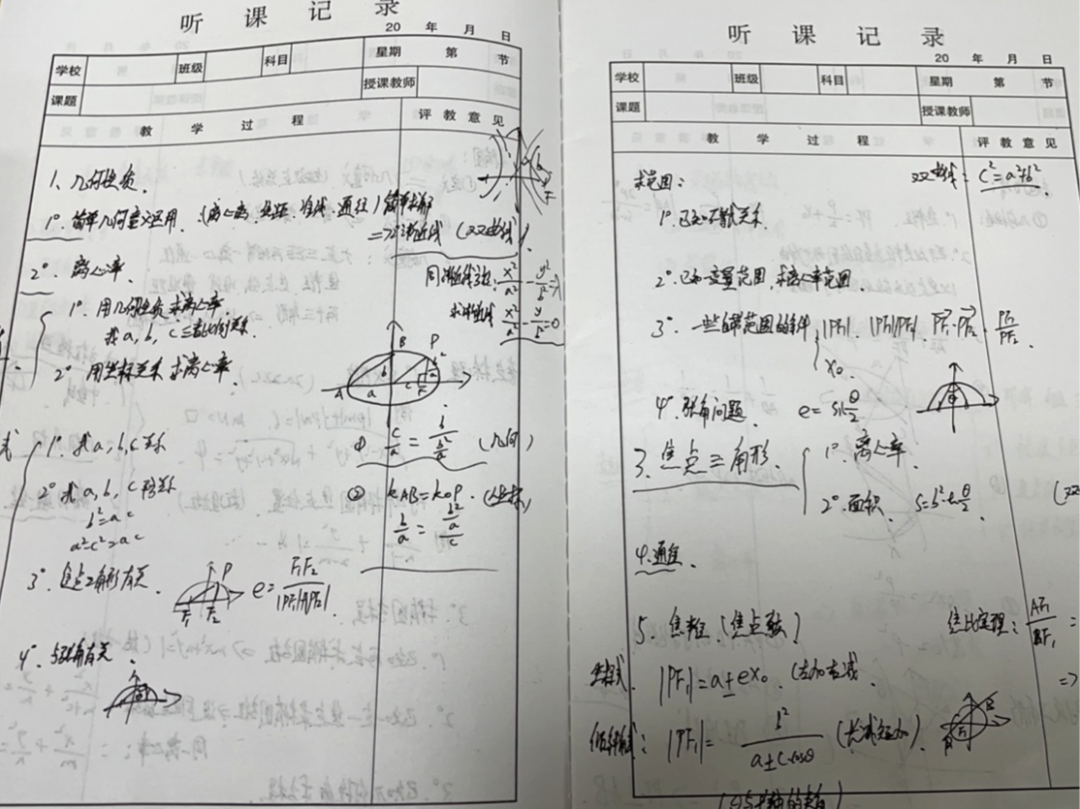 听 课 记 录
20 年 月 日
学校 班级 科目 星期 第 节
课题 授课教师
教 学 过 程 评 教 意 见
1、几何性质.
1° 简单几何意义运用. (离心率, 焦距, 准线, 通径) 简单求解
=> 渐近线 (双曲线)
同渐近线方程: x²/a² - y²/b² = λ
求渐近线 x²/a² - y²/b² = 0
2° 离心率.
1° 用几何性质求离心率.
求 a, b, c 三者的关系
2° 用坐标关系求离心率.
A B P a b c F
1° 求 a, b, c 关系
① c/a = b/(b²/a) (几何)
2° 求 a, b, c 的关系
b²=ac
a²-c²=ac
② kAB=kOP. (坐标)
b/a = (b²/a)/c
3° 焦点三角形有关.
P F₁ F₂
e = F₁F₂/|PF₁|+|PF₂|.
4° 与张角有关.
听 课 记 录
20 年 月 日
学校 班级 科目 星期 第 节
课题 授课教师
教 学 过 程 评 教 意 见
求范围:
双曲线: c²=a²+b²
1° 已知不等式关系.
2° 已知变量范围, 求离心率范围
3° 一些自带范围的条件 |PF₁| |PF₁||PF₂| PF₁·PF₂ . PF₁/PF₂
x₀.
4° 张角问题. e = sin θ/2
3. 焦点三角形.
1° 离心率.
2° 面积. S=b²·tan θ/2
(双
4. 通径.
5. 焦半径 (焦点弦)
焦比定理: AF₁/BF₁ =
坐标式. |PF₁|=a±ex₀. (左加右减
=>
倾斜角式: |PF₁| = b²/(a±c·cosθ) (长减短加).